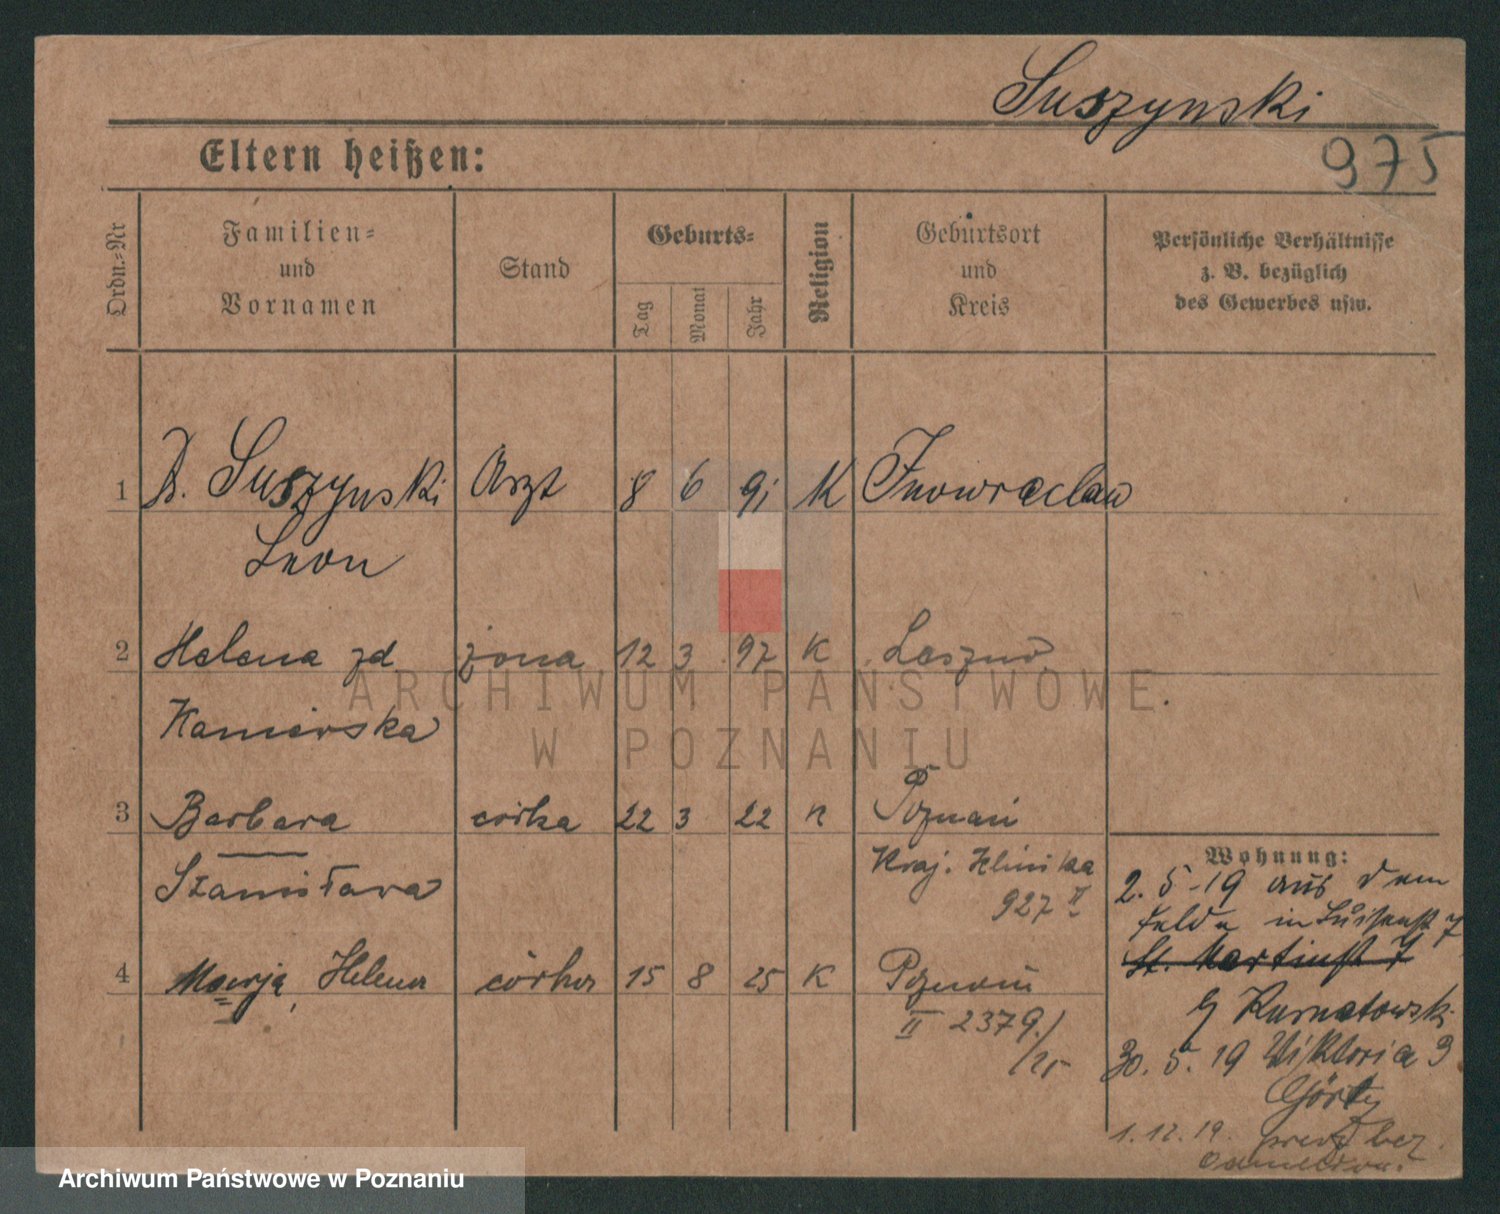 Suszynski
975
Eltern heißen:
Ordn.-Nr
Familien-
und
Vornamen
Stand
Geburts-
Tag
Monat
Jahr
Religion
Geburtsort
und
Kreis
Persönliche Verhältnisse
z. B. bezüglich
des Gewerbes usw.
1 Dr. Suszynski Arzt 8 6 91 K Inowraclaw
Leon
2 Helena zd żona 12 3 97 K
Kamierska
ARCHIWUM PAŃSTWOWE
W POZNANIU
3 Barbara córka 22 3 22 K Poznań
Stanisława
Kraj. Klinika
927 II
Wohnung:
2. 5 - 19 aus dem
Felde in Luisenst 7
St. Martinst 7
4 Marja, Helena córka 15 8 25 K Poznań
II 2379./
/25
Kurnatowski
30. 5. 19 Viktoria 3
1. 12. 19.
Archiwum Państwowe w Poznaniu